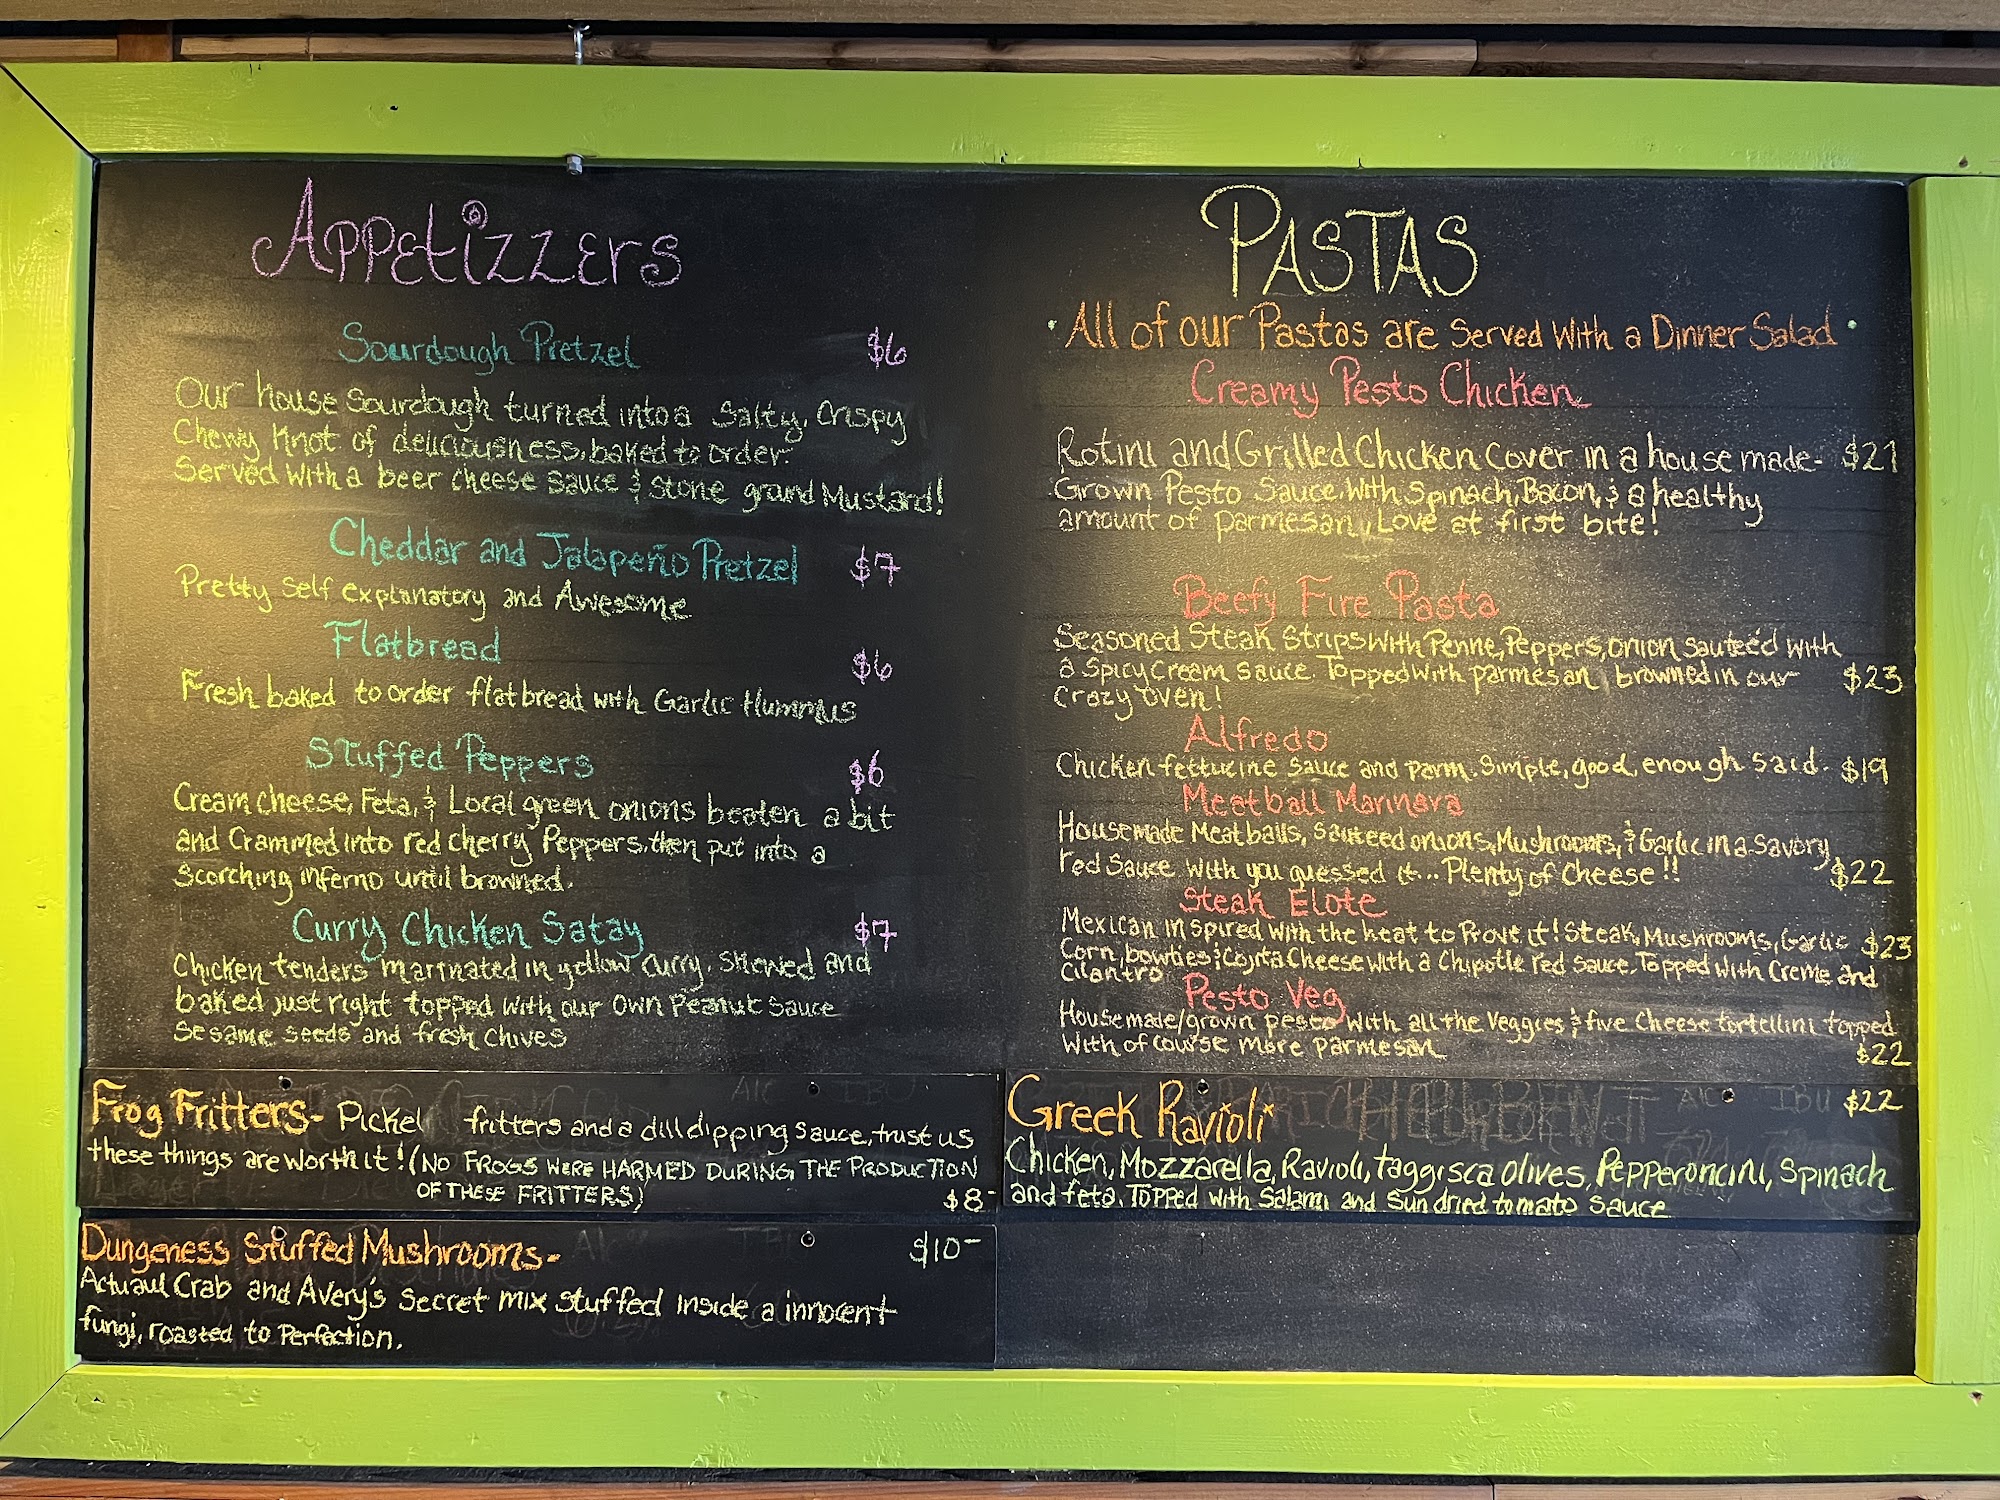 Appetizzers
Sourdough Pretzel $6
Our house Sourdough turned into a Salty, Crispy
Chewy Knot of deliciousness, baked to order.
Served with a beer cheese sauce & stone ground Mustard!
Cheddar and Jalapeño Pretzel $7
Pretty Self explanatory and Awesome
Flatbread $6
Fresh baked to order flatbread with Garlic Hummus
Stuffed Peppers $6
Cream cheese, Feta, & Local green onions beaten a bit
and Crammed into red cherry Peppers, then put into a
Scorching inferno until browned.
Curry Chicken Satay $7
Chicken tenders marinated in yellow Curry. Skewed and
baked just right topped with our own Peanut Sauce
Sesame seeds and fresh chives
Frog Fritters- Pickel fritters and a dill dipping sauce, trust us
these things are worth it! (No Frogs were harmed during the production
of these fritters) $8-
Dungeness Stuffed Mushrooms- $10-
Actuaul Crab and Avery's Secret mix stuffed inside a innocent
fungi, roasted to Perfection.
Pastas
• All of our Pastas are Served With a Dinner Salad •
Creamy Pesto Chicken
Rotini and Grilled Chicken Cover in a house made- $21
Grown Pesto Sauce, With Spinach, Bacon, & a healthy
amount of parmesan, Love at first bite!
Beefy Fire Pasta
Seasoned Steak Strips with Penne, Peppers, onion Sauteéd with
a Spicy Cream sauce. Topped with parmesan, browned in our $23
Crazy oven!
Alfredo
Chicken fettucine sauce and parm. Simple, good, enough said. $19
Meatball Marinara
Housemade Meatballs, sauteed onions, Mushrooms, & Garlic in a Savory
red sauce with you guessed it... Plenty of Cheese!! $22
Steak Elote
Mexican inspired with the heat to Prove it! Steak, Mushrooms, Garlic $23
Corn, bowties & Cojita Cheese with a Chipotle red sauce. Topped with Creme and
Cilantro
Pesto Veg
Housemade/grown pesto with all the Veggies & five Cheese tortellini topped
With of course more parmesan $22
Greek Ravioli $22
Chicken, Mozzarella, Ravioli, taggisca olives, Pepperoncini, Spinach
and feta. Topped with Salami and Sun dried tomato Sauce